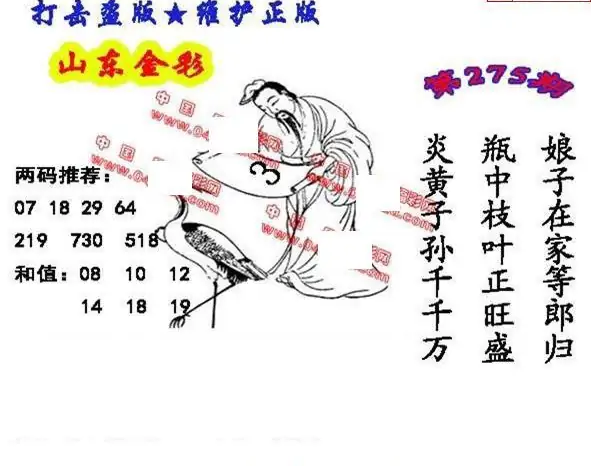 打击盗版★维护正版
山东金彩
第275期
两码推荐：
07 18 29 64
219 730 518
和值：08 10 12
14 18 19
3
娘子在家等郎归
瓶中枝叶正旺盛
炎黄子孙千千万